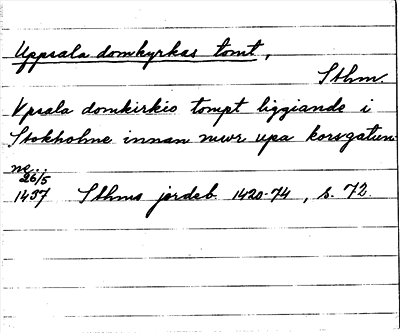 Uppsala domkyrkas tomt,
Sthm.
Vpsala domkirkio tompt liggiande i
Stokholme innan mwr vpa korsgatun-
ne.
26/5
1437 Sthms jordeb. 1420-74, s. 72.